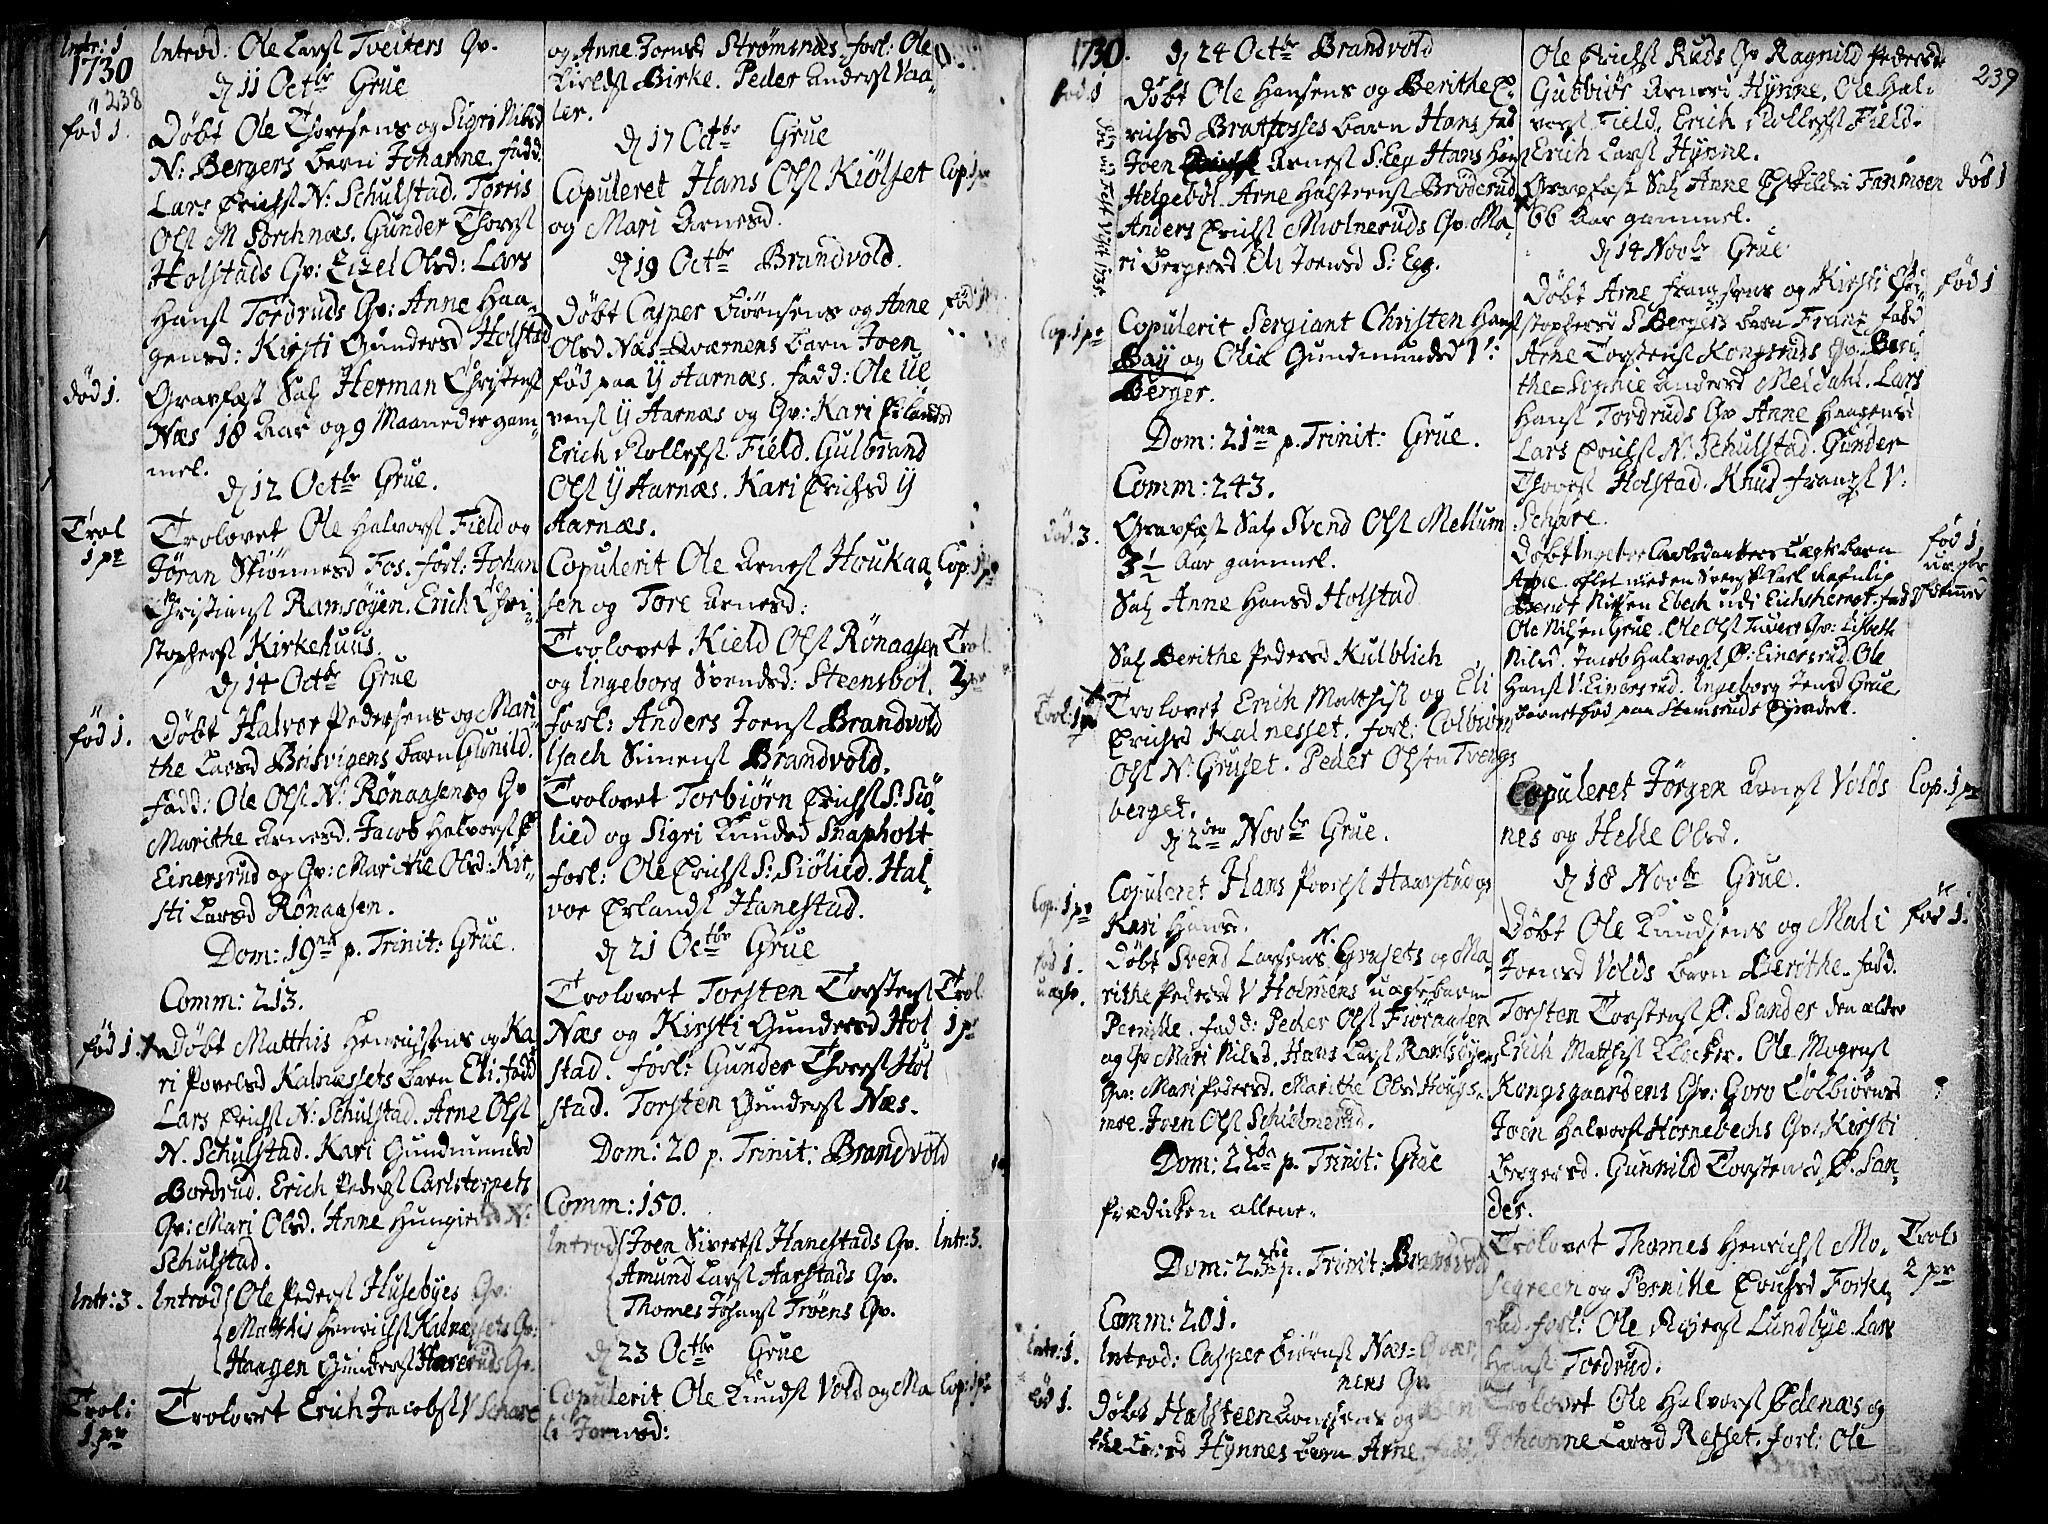 Intr: 1
1730
238
Introd: Ole Larsſ Tveiters Qv.
d 11 Octbr Grue
Død 1.
Døbt Ole Thoresens og Sigri Nilsd
N: Bergers barn Johanne. fadd.
Lars Erichsſ N: Schulstad. Torris
Olsſ M Sorchnæs. Gunder Thoresſ
Holstads Qv: Lizel Olsd: Lars
Hansſ Tordruds Qv: Anne Haa-
gensd: Kirsti Gundersd Holstad
død 1.
Gravfæst Sal Herman Christensſ
Næs 18 Aar og 9 Maaneder gam-
mel.
d 12 Octbr Grue.
Trol
1 pr
Trolovet Ole Halvorsſ Field og
Jøran Skiønnesd Fos. forl: Johan
Christiansſ Ramsøyen. Erich Chri-
stophersſ Kirkehuus.
d 14 Octbr Grue
fød 1.
Døbt Halvor Pedersens og Mari
the Larsd Brisvigens barn Gunild.
fadd: Ole Olsſ N: Rønaasens og Qv
Marithe Arnesd. Jacob Halvorsſ Ø
Einersrud og Qv: Marithe Olsd: Kir-
sti Larsd Rønaasen.
Dom: 19na p. Trinit: Grue.
Comm: 213.
fød 1.
Døbt Matthis Henrichsens og Ka
ri Povelsd Kalnæssets barn Eli. fadd
Lars Erichsſ N: Schulstad. Arne Olsſ
N. Schulstad. Kari Gundmundsd
Bordrud. Erich Pedersſ Carlstorpets
Qv: Mari Olsd. Anne N:
Schulstad.
Intr: 3.
Introd Ole Pedersſ Husebÿes Qv:
Matthis Henrichsſ Kalnæssets Qv:
Haagen Gundersſ Qv.
Trol:
1 pr
Trolovet Erich Jacobsſ V Schare
og Anne Joensd Strømsnæs. forl: Ole
Kieldsſ Birke. Peder Andersſ Vaa-
ler.
d 17 Octbr Grue
Copuleret Hans Olsſ Kiølset
og Mari Arnesd.
Cop: 1 pr
d 19 Octbr Brandvold.
Døbt Casper Biørnsens og Anne
Olsd Næs-Qværnens barn Joen
fød paa Ÿ Aarnæs. fadd: Ole Ul
vensſ Ÿ Aarnæs og Qv: Kari Erlandsd
Erich Rollefsſ Field. Gulbrand
Olsſ Ÿ Aarnæs. Kari Erichsd Ÿ
Aarnæs.
fød 1
Copulerit Ole Arnesſ Houkaa
sen og Tore Arnesd:
Cop: 1 pr
Trolovet Kield Olsſ Rønaasen
og Ingeborg Svendsd: Steensbøl.
forl: Anders Joensſ Brandvold
Isach Simensſ Brandvold.
Trol.
2 pr
Trolovet Torbiørn Erichsſ S: Siö
lied og Sigri Knudsd Snapholt
forl: Ole Erichsſ S: Siölied. Hal-
vor Erlandsſ Hanestad.
d 21 Octbr Grue
Trolovet Torsten Torstensſ
Næs og Kirsti Gundersd Hol
stad. forl: Gunder Thoresſ Hol
stad. Torsten Gundersſ Næs.
Trol
1 pr
Dom: 20 p. Trinit: Brandvold
Comm: 150.
Introd Joen Sivertsſ Hanestads Qv.
Amund Larsſ Aarstads Qv.
Thomes Johansſ Trøens Qv.
Intr: 3.
d 23 Octbr Grue
Copulerit Ole Knudsſ Vold og Ma
li Joensd:
Cop: 1 pr
1730.
d 24 Octbr Brandvold
fød 1
Døbt Ole Hansens og Berithe E
richsd Bratfosses barn Hans. fad
Joen Arnesſ S: Eeg Hans Hansſ
Helgebøl. Arne Halsteensſ Brøderud
Anders Erichsſ Molneruds Qv: Ma-
ri Bergersd Eli Joensd S: Eeg.
Cop: 1 pr
Copulerit Sergiant Christen Hansſ
Bay og Olia Gundmundsd V:
Berger.
Dom: 21ma p. Trinit: Grue.
Comm: 243.
død. 3.
Gravfæst Sal Svend Olsſ Mellum
3½ Aar gammel.
Sal Anne Hansd Holstad
Sal Berithe Pedersd Kulblich
Trol: 1 pr
Trolovet Erich Matthisſ og Eli
Erichsd Kalnesset. forl: Colbiørn
Olsſ N: Gruset. Peder Olsen Tvengs
berget.
d 2den Novbr Grue.
Cop: 1 pr
Copuleret Hans Povelsſ Haarstad og
Kari Hansd.
fød 1.
uægt.
Døbt Svend Larsens N. Grusets og Ma-
rithe Pedersd V Holmens uægte barn
Pernille. fadd: Peder Olsſ Fioraasen
og Qv Mari Nilsd. Hans Larsſ Ramsøyens
Qv: Mari Pedersd. Marithe Olsd Hougs-
moe. Joen Olsſ Schielmerud.
Dom: 22da p. Trinit: Grue
Prædicken allene.
Dom: 23tia p. Trinit: Brandvold
Comm: 201.
Intr: 1.
Introd: Casper Biørnsſ Næs-Qvær
nens Qv
fød 1.
Døbt Halsteen og
the Hynnes barn Arne. fadd
239
Ole Erichsſ Ruds Qv Ragnild Pedersd
Gubbiør Arnesd Hynne. Ole Hal-
vorsſ Field. Erich Rollefsſ Field.
Erich Larsſ Hynne.
Gravfæst Sal Anne Eskildsd Fanmoen
66 Aar gammel.
død 1
d 14 Novbr Grue
Døbt Arne Franssens og Kirsti Chri-
stophersd S Bergers barn Franz. fadd
Arne Torstensſ Kongsruds Qv. Beri-
the-Sophie Andersd Meldahl. Lars
Hansſ Tordruds Qv Anne Haagensd
Lars Erichsſ N: Schulstad. Gunder
Thoresſ Holstad. Knud Franzsſ V:
Schare.
fød 1
Døbt Ingebor Carlsdatters uægte barn
Arne. aflet med en Svensk karl nafnlig
Bendt Nilsen Ebech udi Eichsherret. fadd
Ole Nilsen Grue. Ole Olsſ Tuver Qv: Lisbeth
Nilsd. Jacob Halvorsſ Ø: Einersrud. Ole
Hansſ V: Einersrud. Ingeborg Jensd Grue
barnet fød paa Stemsruds Eyendel.
fød 1.
uægte
Copuleret Jørgen Arnesſ Volds
nes og Helle Olsd.
Cop. 1 pr
d 18 Novbr Grue.
Døbt Ole Knudsens og Mali
Joensd Volds barn Berithe. fadd.
Torsten Torstensſ Ø. Sander den ældre
Erich Matthisſ Klocker. Ole Mogensſ
Kongsgaardens Qv: Goro Colbiørnsd
Joen Halvorsſ Hornebechs Qv: Kirsti
Bergersd. Gunnild Torstensd Ø: San-
der.
fød 1.
Trolovet Thomes Henrichsſ Mo-
segreen og Pernille Poulsd Forke
rud. forl: Ole Lundbÿe. Lars
Hansſ Tordrud.
Trol:
2 pr
Trolovet Ole Halvorsſ Ødenæs og
Johanne Larsd Rasset. forl: Ole